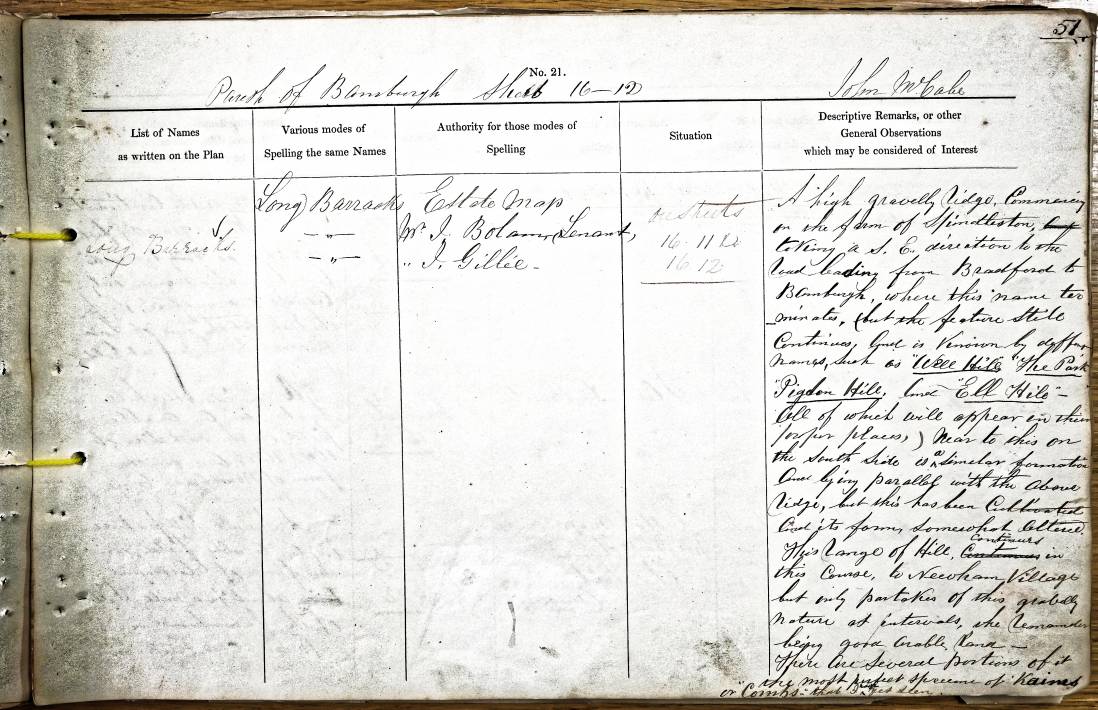 51
No. 21.
Parish of Bamburgh Sheet 16-12 John McCabe
List of Names
as written on the Plan
Various modes of
Spelling the same Names
Authority for those modes of
Spelling
Situation
Descriptive Remarks, or other
General Observations
which may be considered of Interest
Long Barracks.
Long Barracks
— " —
— " —
Estate Map
Mr. J. Bolam, Tenant,
" J. Gillie -
on Sheets
16-11 &
16 12
A high gravelly ridge, Commencing
on the farm of Spindleston,
taking a S. E. direction to the
road leading from Bradford to
Bamburgh, where this name ter
minates, (but the feature still
Continues, and is Known by differ
names, such as "Well Hill" "The Park
"Pigdon Hill, and "Ell Hill" -
all of which will appear in their
proper places,) Near to this on
the South Side is a similar formation
and lying parallel with the above
ridge, but this has been Cultivated
and its form, somewhat altered.
This range of Hill, Continues in
this Course, to Newham Village
but only partakes of this gravelly
nature at intervals, the remainder
being good arable Land -
There are several portions of it
the most perfect specime of Kaims
or "Combs" that I yet seen.